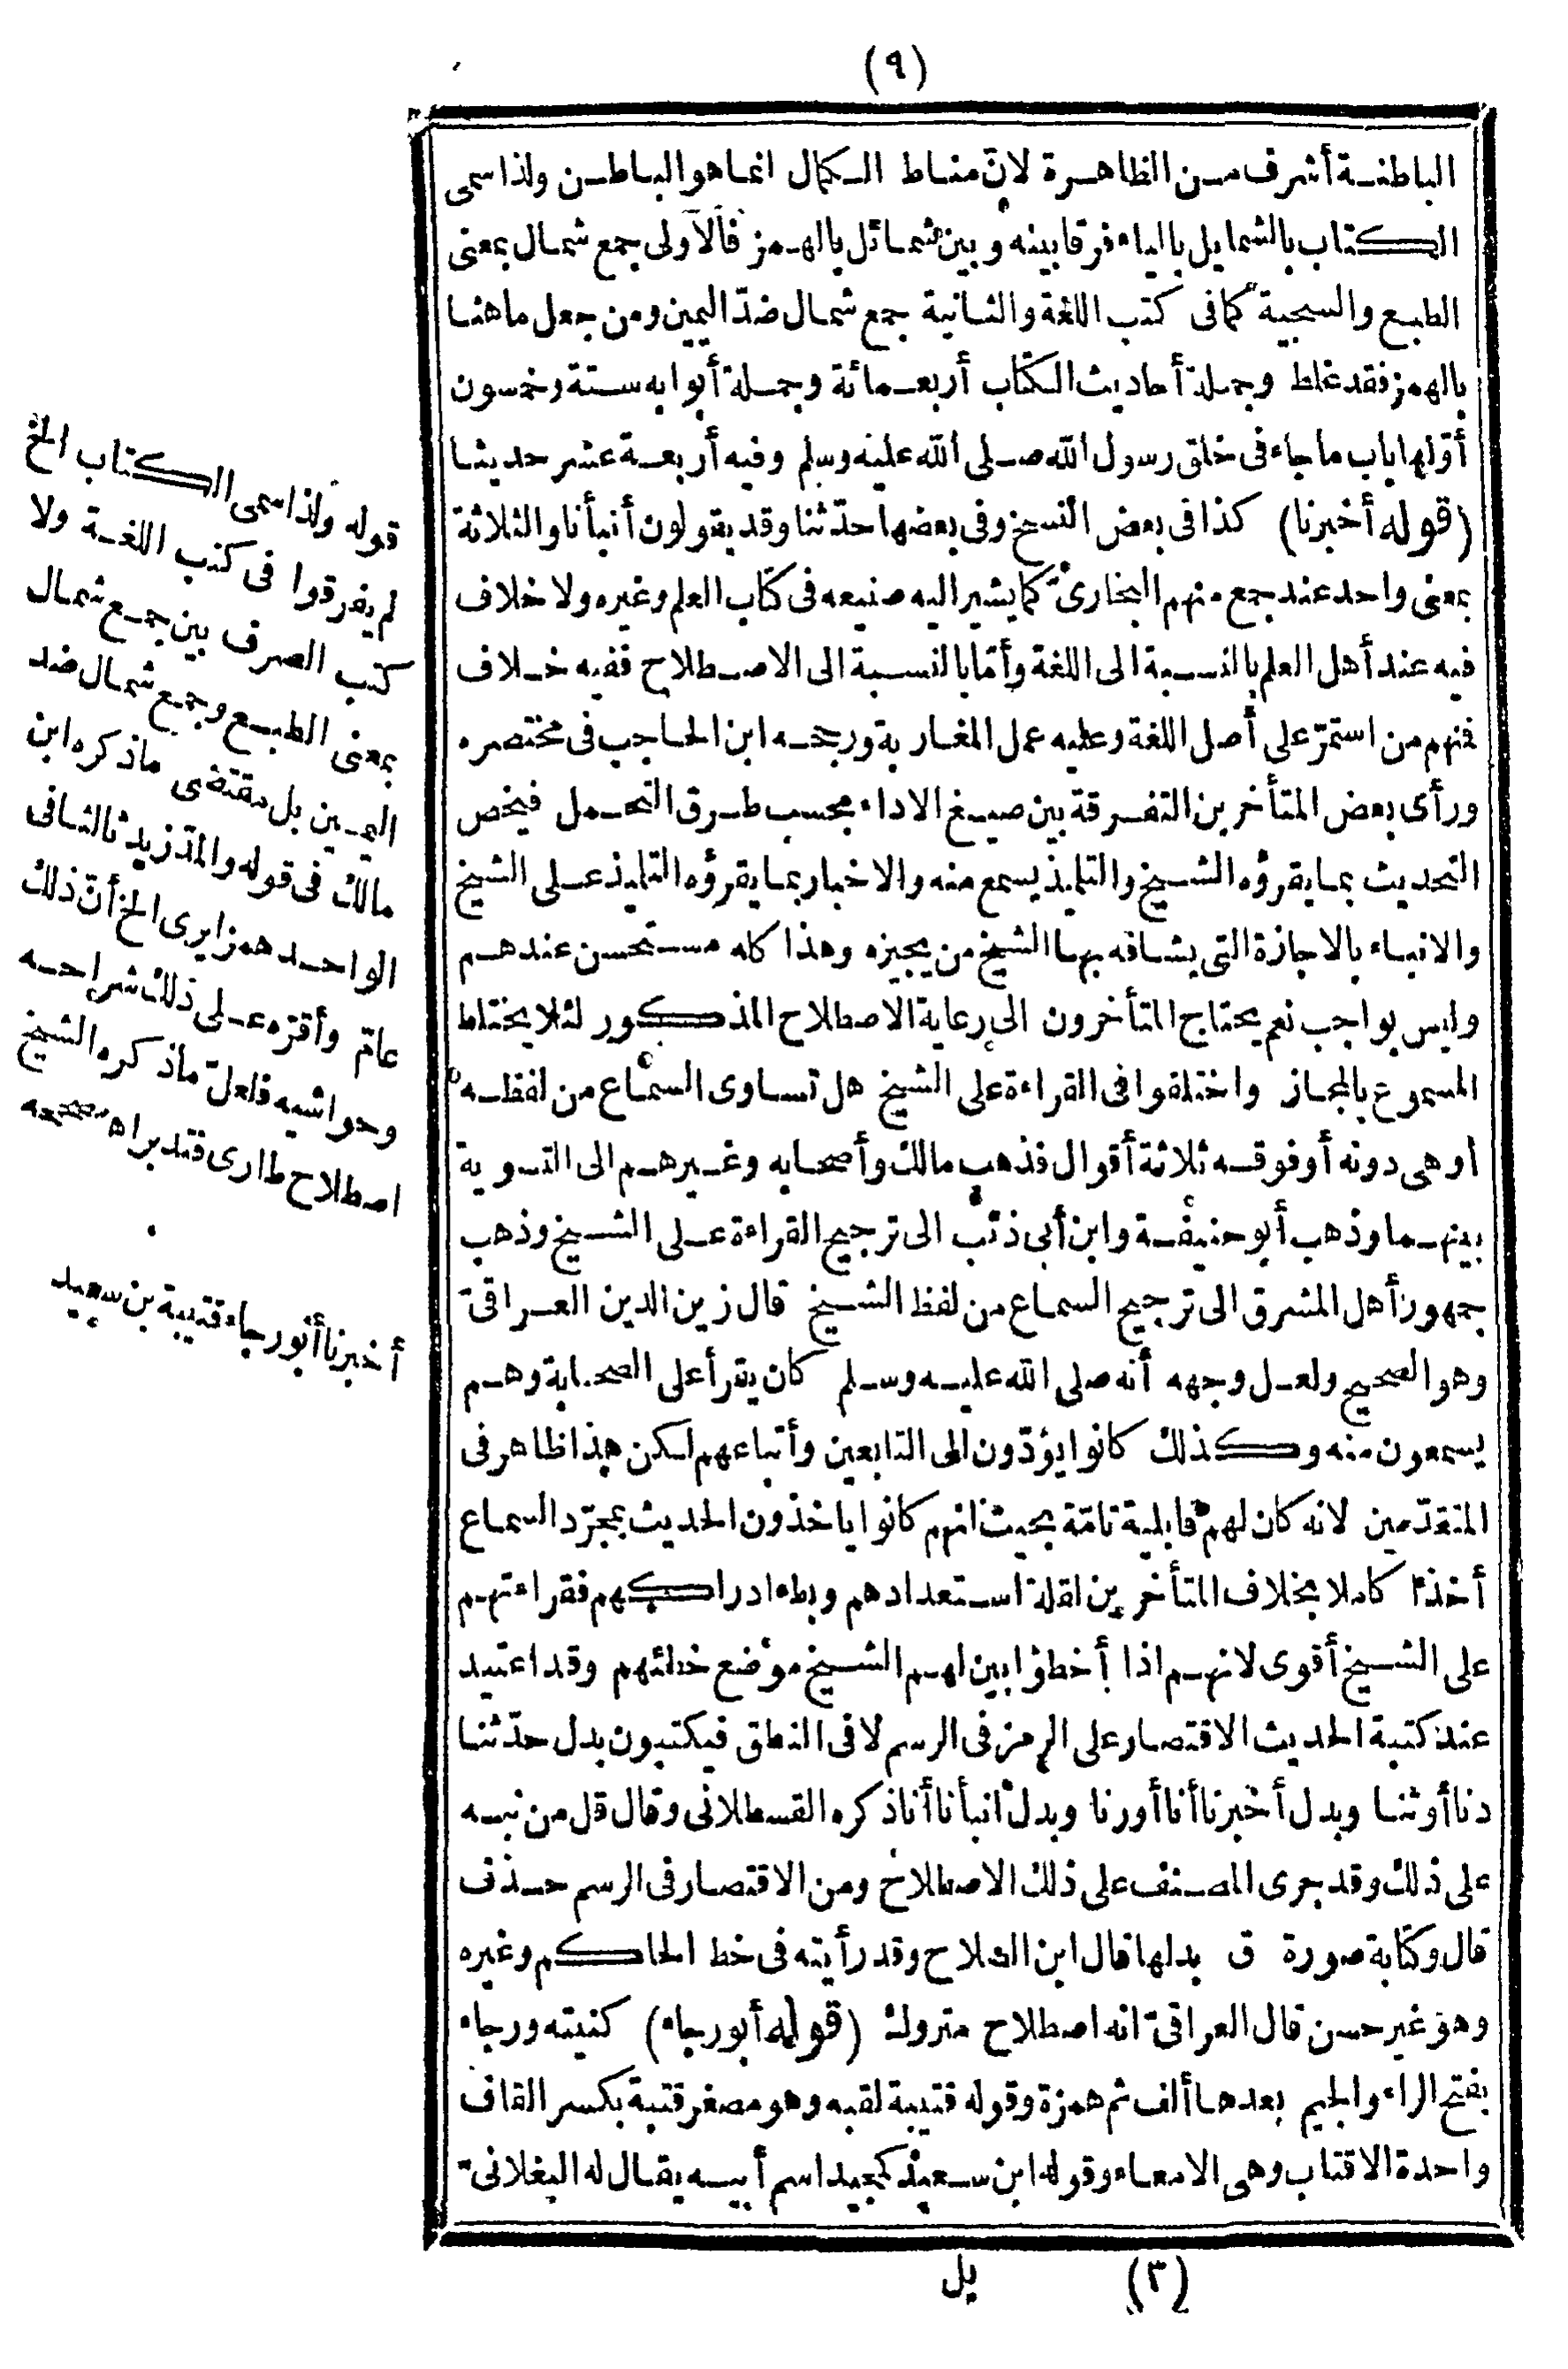 (٩)
الباطنة أشرف من الظاهرة لانّ مناط الكمال انما هو الباطن ولذا سمى
الكتاب بالشمايل بالياء فرقا بينه وبين شمائل بالهمز فالاولى جمع شمال بمعنى
الطبع والسجية كما فى كتب اللغة والثانية جمع شمال ضدّ اليمين ومن جعل ما هنا
بالهمز فقد غلط وجملة أحاديث الكتاب أربعمائة وجملة أبوابه ستة وخمسون
أوّلها باب ما جاء فى خلق رسول الله صلى الله عليه وسلم وفيه أربعة عشر حديثا
(قوله أخبرنا) كذا فى بعض النسخ وفى بعضها حدّثنا وقد يقولون أنبأنا والثلاثة
بمعنى واحد عند جمع منهم البخارىّ كما يشير اليه صنيعه فى كتاب العلم وغيره ولا خلاف
فيه عند أهل العلم بالنسبة الى اللغة وأمّا بالنسبة الى الاصطلاح ففيه خلاف
فنهم من استمرّ على أصل اللغة وعليه عمل المغاربة ورجحه ابن الحاجب فى مختصره
ورأى بعض المتأخرين التفرقة بين صيغ الاداء بحسب طرق التحمل فيخص
التحديث بما يقرؤه الشيخ والتلميذ يسمع منه والاخبار بما يقرؤه التلميذ على الشيخ
والانباء بالاجازة التى يشافه بها الشيخ من يجيزه وهذا كله مستحسن عندهم
وليس بواجب نعم يحتاج المتأخرون الى رعاية الاصطلاح المذكور لئلا يختلط
المسموع بالمجاز واختلفوا فى القراءة على الشيخ هل تساوى السماع من لفظه
أو هى دونه أو فوقه ثلاثة أقوال فذهب مالك وأصحابه وغيرهم الى التسوية
بينهما وذهب أبو حنيفة وابن أبى ذئب الى ترجيح القراءة على الشيخ وذهب
جمهور أهل المشرق الى ترجيح السماع من لفظ الشيخ قال زين الدين العراقىّ
وهو الصحيح ولعل وجهه أنه صلى الله عليه وسلم كان يقرأ على الصحابة وهم
يسمعون منه وكذلك كانوا يؤدّون الى التابعين وأتباعهم لكن هذا ظاهر فى
المتقدّمين لانه كان لهم قابلية تامّة بحيث انهم كانوا ياخذون الحديث بمجرّد السماع
أخذا كاملا بخلاف المتأخرين لقلة استعدادهم وبطء ادراكهم فقراءتهم
على الشيخ أقوى لانهم اذا أخطؤا بين لهم الشيخ موضع خطئهم وقد اعتيد
عند كتبة الحديث الاقتصار على الرمز فى الرسم لا فى النطق فيكتبون بدل حدّثنا
دنا أو ثنا وبدل أخبرنا أنا أورنا وبدل أنبأنا أنا ذكره القسطلانى وقال قل من نبه
على ذلك وقد جرى المصنف على ذلك الاصطلاح ومن الاقتصار فى الرسم حذف
قال وكتابة صورة ق بدلها قال ابن الصلاح وقد رأيته فى خط الحاكم وغيره
وهو غير حسن قال العراقىّ انه اصطلاح متروك (قوله أبو رجاء) كنيته ورجاء
بفتح الراء والجيم بعدها ألف ثم همزة وقوله قتيبة لقبه وهو مصغر قتبة بكسر القاف
واحدة الاقتاب وهى الامعاء وقوله ابن سعيد كجيد اسم أبيه يقال له البغلانىّ
(٣) بل
قوله ولذا سمى الكتاب الخ
لم يفرقوا فى كتب اللغة ولا
كتب الصرف بين جمع شمال
بمعنى الطبع وجمع شمال ضد
اليمين بل مقتضى ما ذكره ابن
مالك فى قوله والمدّ زيد ثالثا فى
الواحد همزا يرى الخ أنّ ذلك
عامّ وأقرّه على ذلك شراحه
وحواشيه فلعلّ ما ذكره الشيخ
اصطلاح طارى فتدبر اه مصححه
أخبرنا أبو رجاء قتيبة بن سعيد